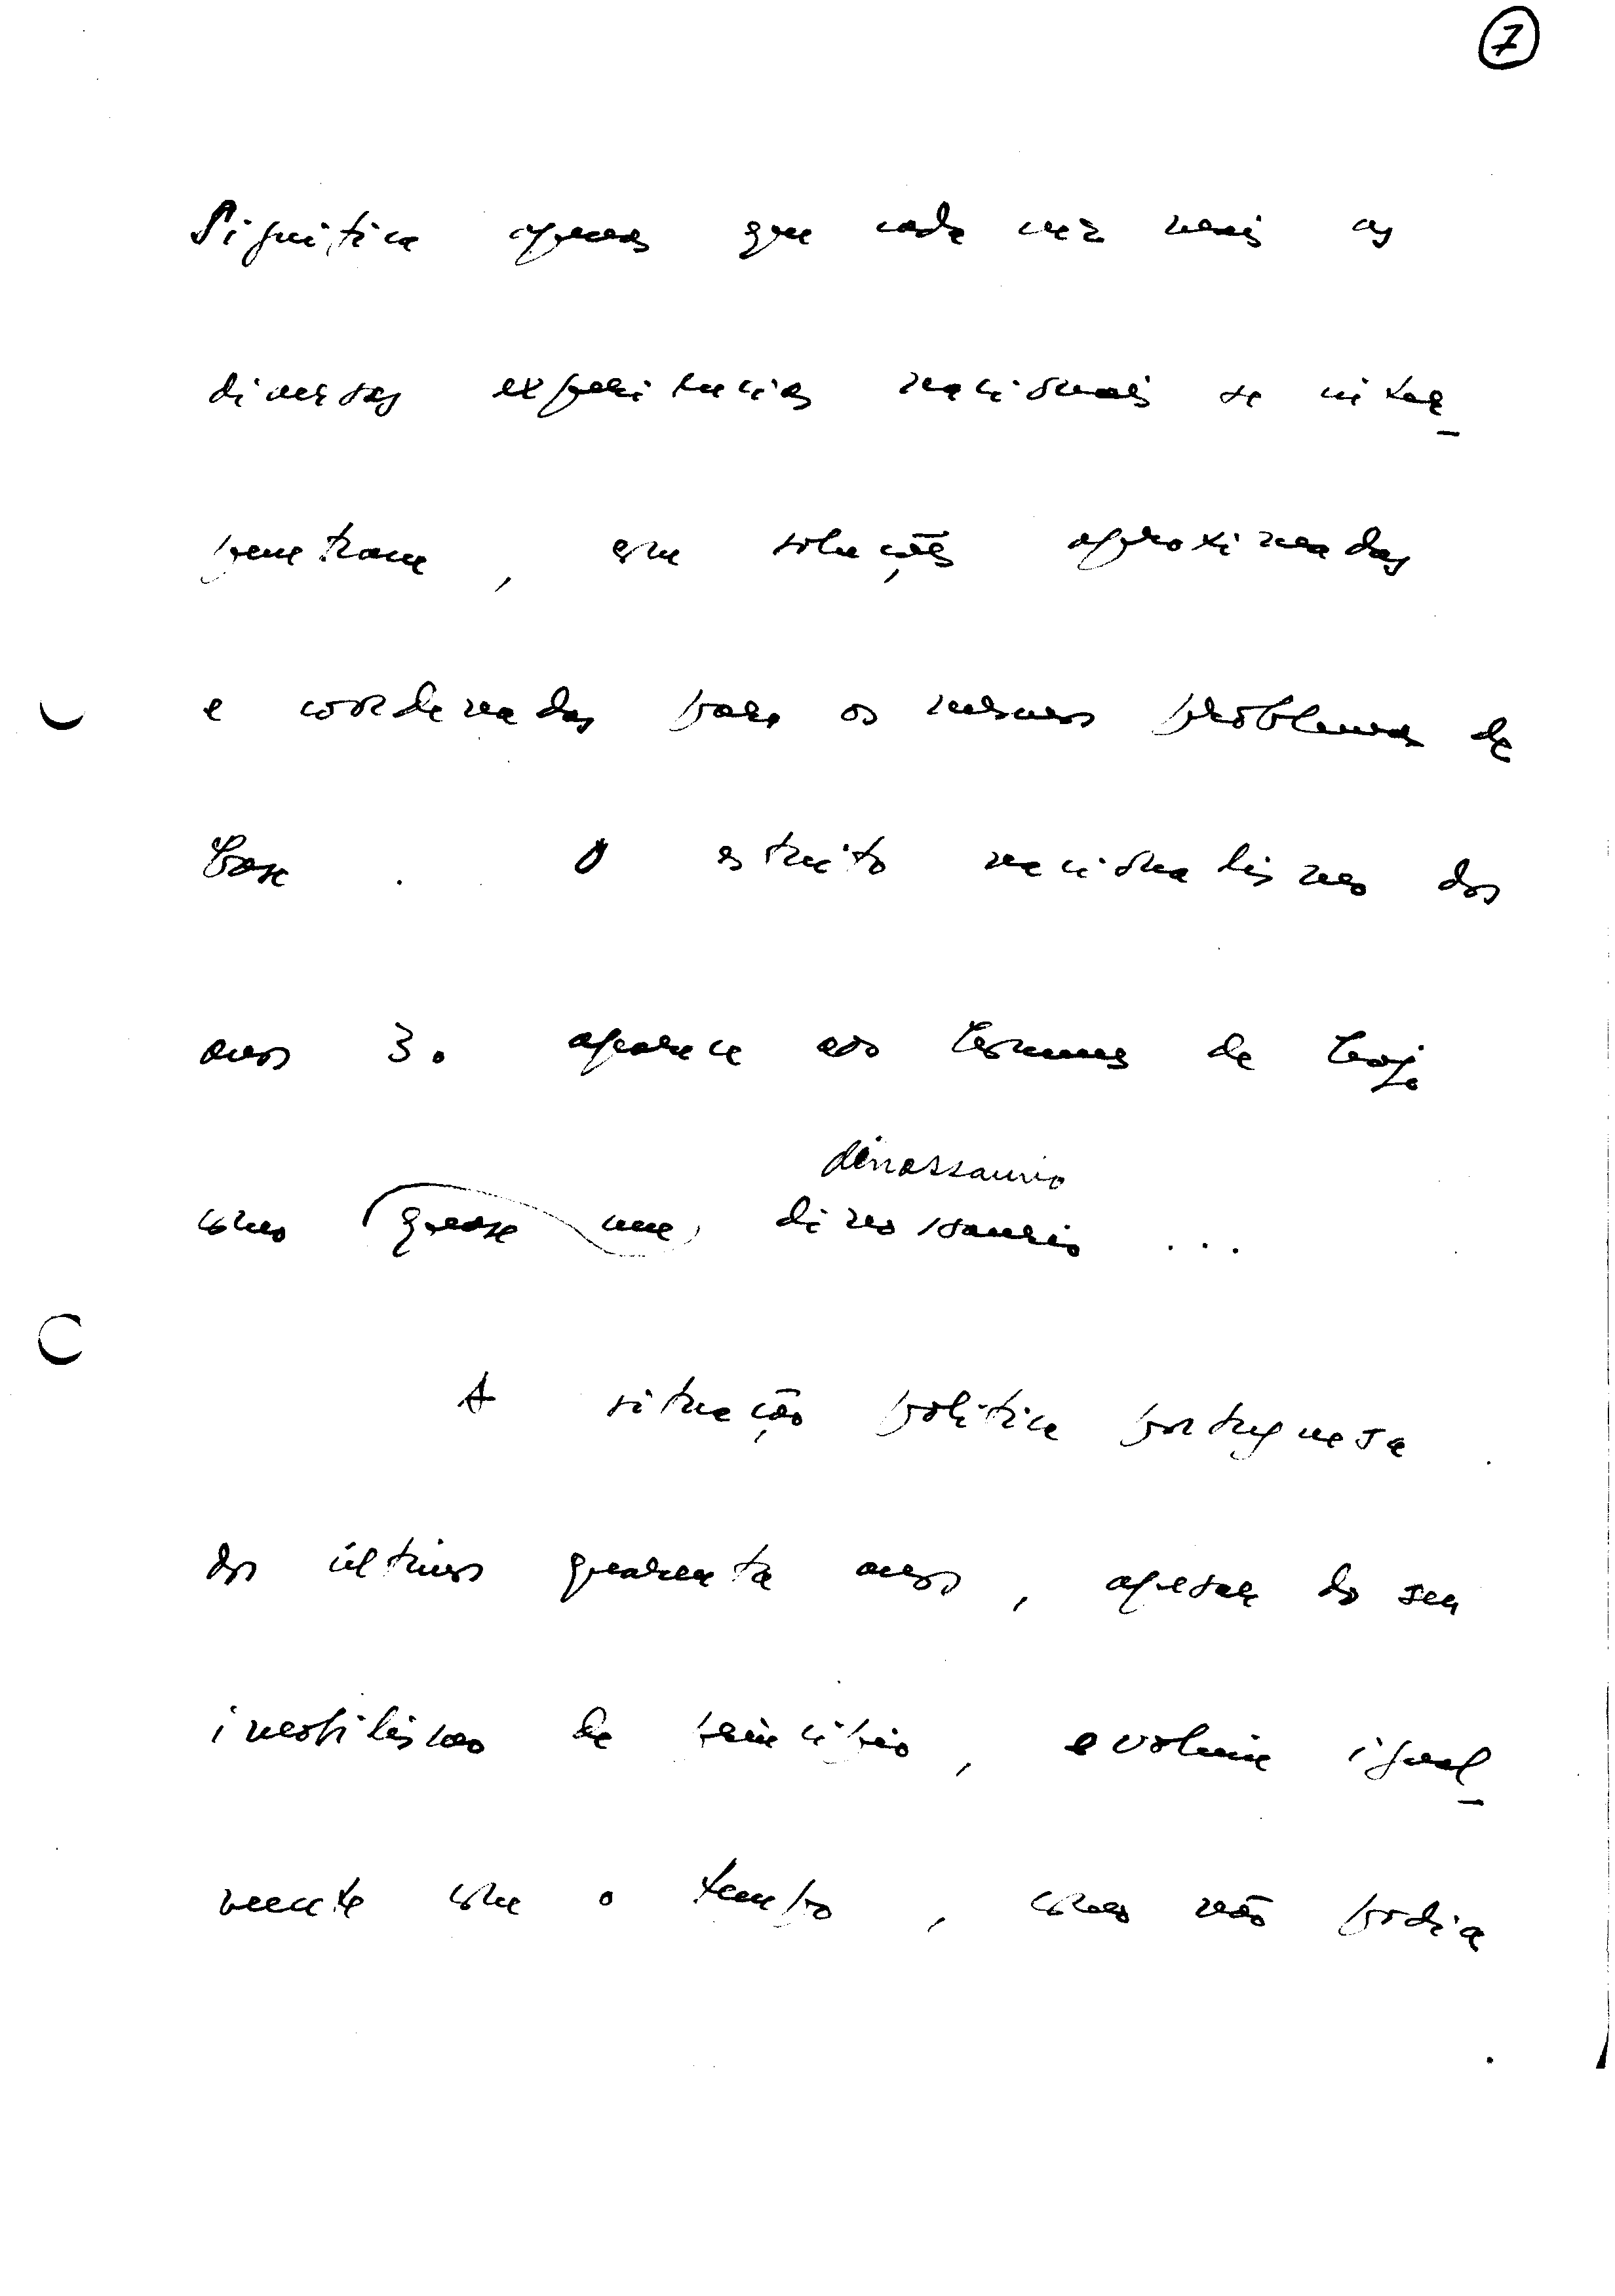 7
Significa apenas que cada vez mais as
diversas experiências nacionais se inter_
penetram, em soluções aproximadas
e coordenadas para os mesmos problemas de
base. O estreito nacionalismo dos
anos 30 aparece aos homens de hoje
dinossaurio
como quase um dinossaurio ...
A situação política portuguesa
dos últimos quarenta anos, apesar do seu
imobilismo de princípio, evoluiu igual_
mente com o tempo, como não podia